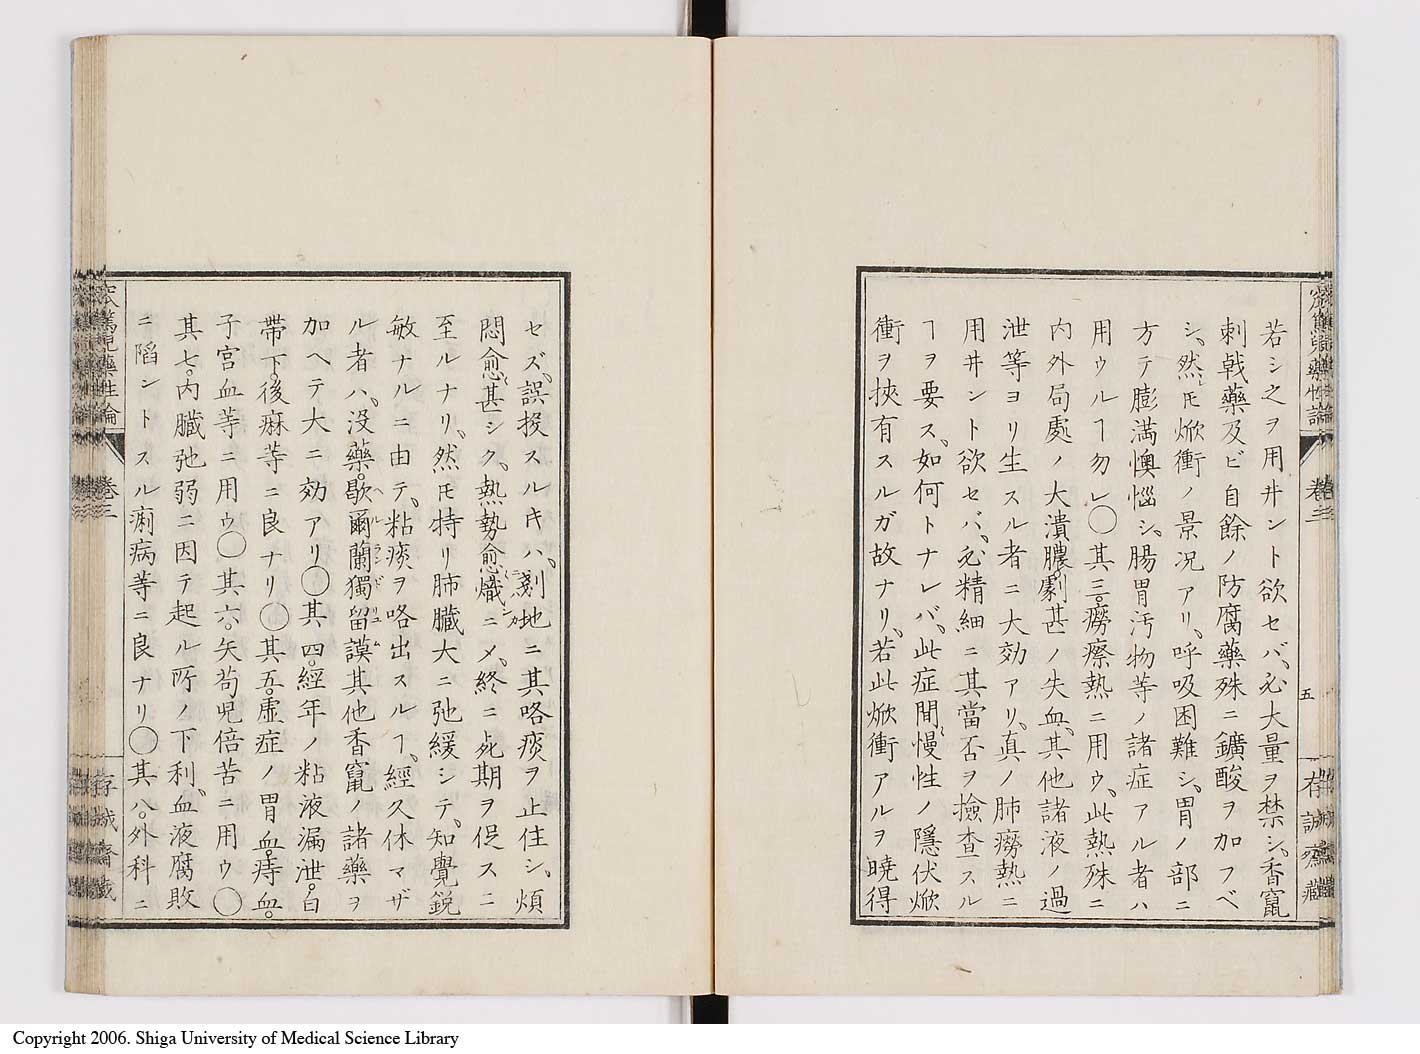 若シ之ヲ用井ント欲セバ、必大量ヲ禁シ、香竄
刺戟藥及ビ自餘ノ防腐藥殊ニ鑛酸ヲ加フベ
シ、然レ𪜈焮衝ノ景況アリ、呼吸困難シ、胃ノ部ニ
方テ膨満懊惱シ、腸胃汚物等ノ諸症アル者ハ
用ウルヿ勿レ◯其三。癆瘵熱ニ用ウ、此熱殊ニ
内外局處ノ大潰膿。劇甚ノ失血、其他諸液ノ過
泄等ヨリ生スル者ニ大効アリ、真ノ肺癆熱ニ
用井ント欲セバ、必精細ニ其當否ヲ撿査スル
ヿヲ要ス、如何トナレバ、此症間慢性ノ隱伏焮
衝ヲ挾有スルガ故ナリ、若此焮衝アルヲ曉得
五
存誠齋藏
セズ、誤投スルキハ、剡地ニ其咯痰ヲ止住シ、煩
悶愈甚シク、熱勢愈熾ニメ、終ニ死期ヲ促スニ
至ルナリ、然𪜈特リ肺臓大ニ弛緩シテ、知覺鋭
敏ナルニ由テ、粘痰ヲ咯出スルヿ、經久休マザ
ル者ハ、没藥。歇爾蘭獨留謨其他香竄ノ諸藥ヲ
加ヘテ大ニ効アリ◯其四。經年ノ粘液漏泄。白
帶下。後痳等ニ良ナリ◯其五。虚症ノ胃血。痔血。
子宮血等ニ用ウ◯其六。失苟児倍苦ニ用ウ◯
其七。内臓弛弱ニ因テ起ル所ノ下利、血液腐敗
ニ陷ントスル痢病等ニ良ナリ◯其八。外科ニ
藥性論
卷三
Copyright 2006. Shiga University of Medical Science Library